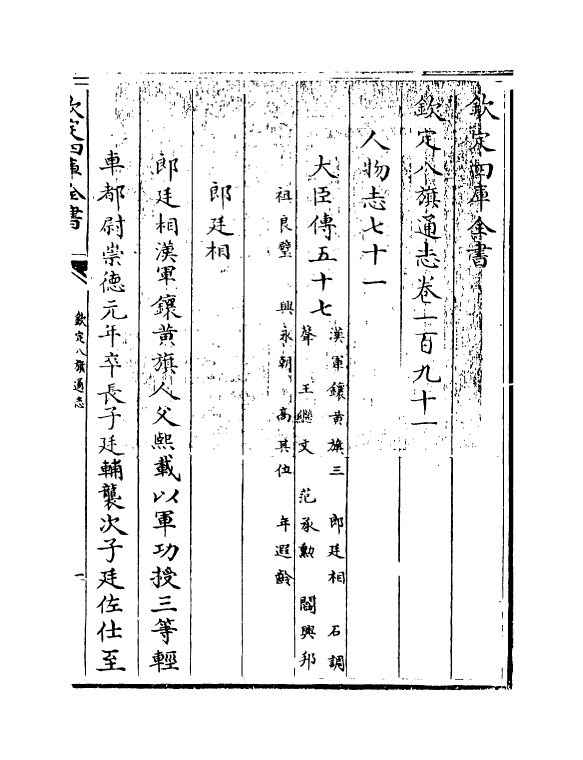 欽定四庫全書
欽定八旗通志卷一百九十一
人物志七十一
大臣傳五十七
漢軍鑲黃旗三 郎廷相 石調
聲 王繼文 范承勳 閻興邦
祖良璧 興永朝 高其位 年遐齡
郎廷相
郎廷相漢軍鑲黃旗人父熙載以軍功授三等輕
車都尉崇德元年卒長子廷輔襲次子廷佐仕至
欽定四庫全書
欽定八旗通志
一